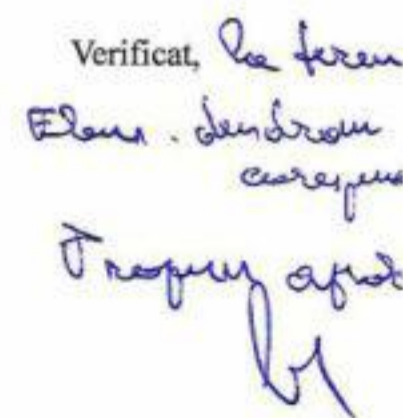 Verificat, la teren
Elem. dendrom
corespund
Propun aprob